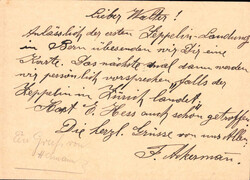 Lieber Walter!
Anlässlich der ersten Zeppelin-Landung
in Bern übersenden wir Dir eine
Karte. Das nächste mal dann werden
wir persönlich vorsprechen, falls der
Zeppelin in Zürich landet.
Hast E. Hess auch schön getroffen
Die herzl. Grüsse von uns Allen
F. Ackerman.
Ein Gruss von